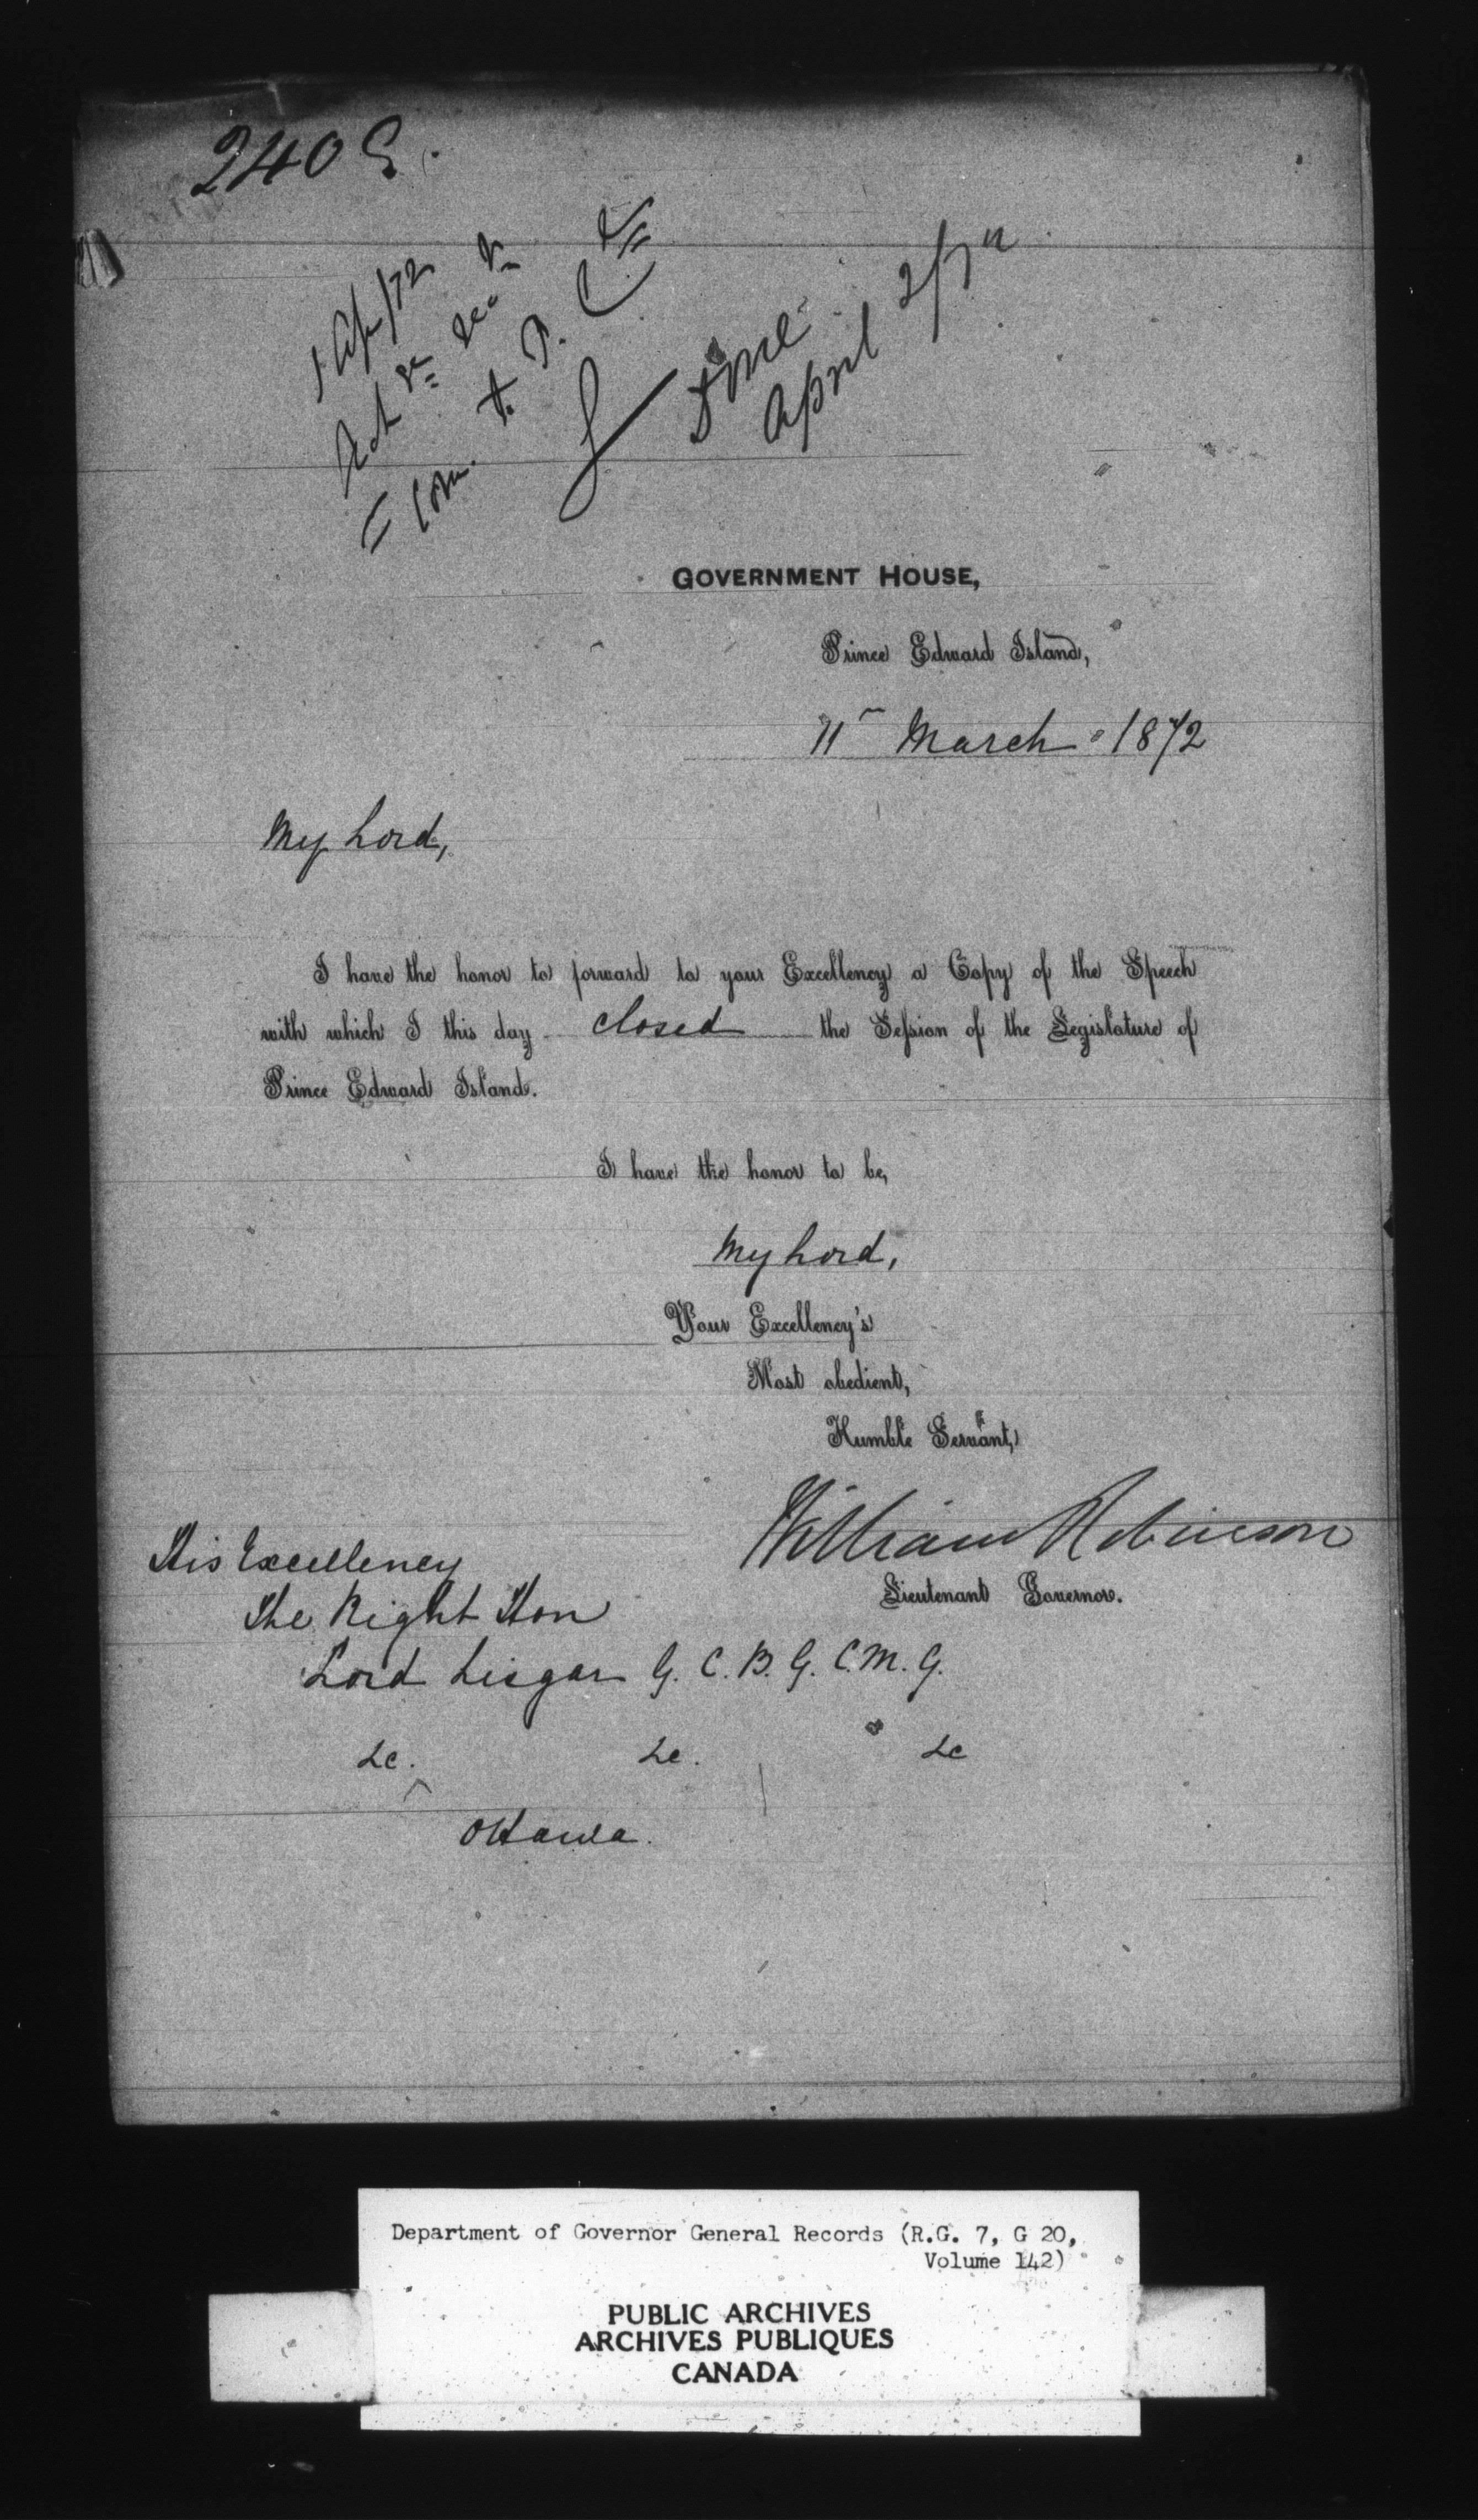 240
1 Ap/72
Ack
Com. to P. C.
Done
April 2/72
GOVERNMENT HOUSE,
Prince Edward Island,
11 March 1872
My Lord,
I have the honor to forward to your Excellency a Copy of the Speech
with which I this day closed the Session of the Legislature of
Prince Edward Island.
I have the honor to be,
My Lord,
Your Excellency's
Most obedient,
Humble Servant,
William Robinson
Lieutenant Governor.
His Excellency
The Right Hon
Lord Lisgar G. C. B. G. C. M. G.
&c. &c. &c
Ottawa.
Department of Governor General Records (R.G. 7, G 20,
Volume 142)
PUBLIC ARCHIVES
ARCHIVES PUBLIQUES
CANADA